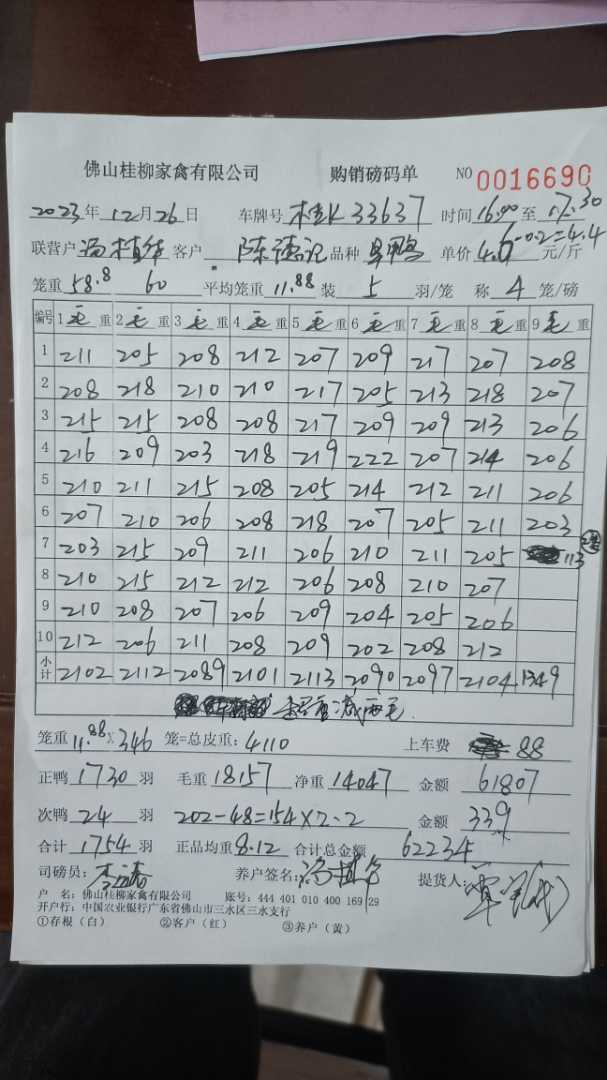 佛山桂柳家禽有限公司 购销磅码单 NO 0016690
2023年12月26日 车牌号 桂K 33637 时间 16.00 至 17.30
联营户 冯植华 客户 陈德记 品种 单价 4.6-0.2=4.4 元/斤
笼重 58.8 60 平均笼重 11.88 装 5 羽/笼 称 4 笼/磅
编号 1 毛 重 2 毛 重 3 毛 重 4 毛 重 5 毛 重 6 毛 重 7 毛 重 8 毛 重 9 毛 重
1 211 205 208 212 207 209 217 207 208
2 208 218 210 210 217 205 213 218 207
3 215 215 208 208 217 209 209 213 206
4 216 209 203 218 219 222 207 214 206
5 210 211 215 208 205 214 212 211 206
6 207 210 206 208 218 207 205 211 203
7 203 215 209 211 206 210 211 205 113
8 210 215 212 212 206 208 210 207
9 210 208 207 206 209 204 205 206
10 212 206 211 208 209 202 208 212
小计 2102 2112 2089 2101 2113 2090 2097 2104 1349
笼重 11.88 X 346 笼=总皮重: 4110 上车费 88
正鸭 1730 羽 毛重 18157 净重 14047 金额 61807
次鸭 24 羽 202-48=154×2.2 金额 339
合计 1754 羽 正品均重 8.12 合计总金额 62234
司磅员: 养户签名: 冯植华 提货人:
户 名: 佛山桂柳家禽有限公司 账号: 444 401 010 400 169 29
开户行: 中国农业银行广东省佛山市三水区三水支行
①存根（白） ②客户（红） ③养户（黄）